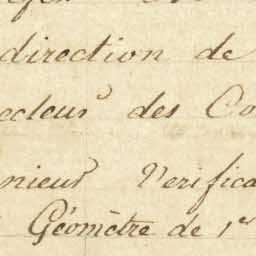 direction de
ecteur des Co
nieur Verifica
Géomètre de 1er